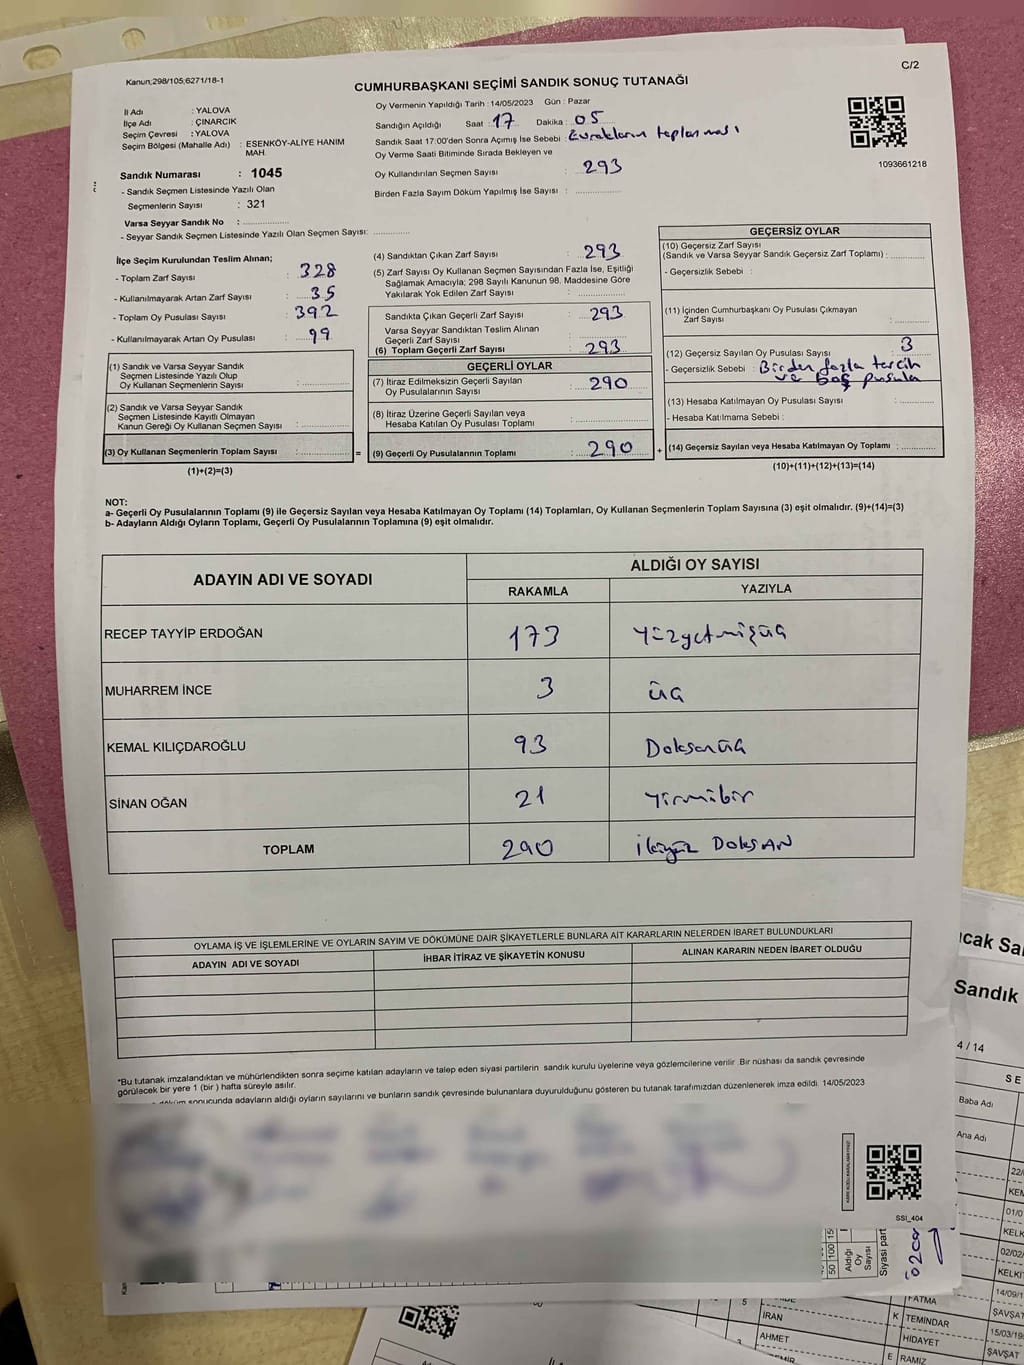 C/2
Kanun;298/105;6271/18-1
CUMHURBAŞKANI SEÇİMİ SANDIK SONUÇ TUTANAĞI
İl Adı : YALOVA
İlçe Adı : ÇINARCIK
Seçim Çevresi : YALOVA
Seçim Bölgesi (Mahalle Adı) : ESENKÖY-ALİYE HANIM
MAH.
Sandık Numarası : 1045
- Sandık Seçmen Listesinde Yazılı Olan
Seçmenlerin Sayısı : 321
Varsa Seyyar Sandık No :
- Seyyar Sandık Seçmen Listesinde Yazılı Olan Seçmen Sayısı:
Oy Vermenin Yapıldığı Tarih : 14/05/2023 Gün : Pazar
Sandığın Açıldığı Saat : 17 Dakika : 05
Sandık Saat 17:00'den Sonra Açımış İse Sebebi : Evrakların toplanması
Oy Verme Saati Bitiminde Sırada Bekleyen ve
Oy Kullandırılan Seçmen Sayısı : 293
Birden Fazla Sayım Döküm Yapılmış İse Sayısı :
1093661218
İlçe Seçim Kurulundan Teslim Alınan;
- Toplam Zarf Sayısı : 328
- Kullanılmayarak Artan Zarf Sayısı : 35
- Toplam Oy Pusulası Sayısı : 392
- Kullanılmayarak Artan Oy Pusulası : 99
(1) Sandık ve Varsa Seyyar Sandık
Seçmen Listesinde Yazılı Olup
Oy Kullanan Seçmenlerin Sayısı :
(2) Sandık ve Varsa Seyyar Sandık
Seçmen Listesinde Kayıtlı Olmayan
Kanun Gereği Oy Kullanan Seçmen Sayısı :
(3) Oy Kullanan Seçmenlerin Toplam Sayısı : =
(1)+(2)=(3)
(4) Sandıktan Çıkan Zarf Sayısı : 293
(5) Zarf Sayısı Oy Kullanan Seçmen Sayısından Fazla İse, Eşitliği
Sağlamak Amacıyla; 298 Sayılı Kanunun 98. Maddesine Göre
Yakılarak Yok Edilen Zarf Sayısı :
Sandıkta Çıkan Geçerli Zarf Sayısı : 293
Varsa Seyyar Sandıktan Teslim Alınan
Geçerli Zarf Sayısı :
(6) Toplam Geçerli Zarf Sayısı : 293
GEÇERLİ OYLAR
(7) İtiraz Edilmeksizin Geçerli Sayılan
Oy Pusulalarının Sayısı : 290
(8) İtiraz Üzerine Geçerli Sayılan veya
Hesaba Katılan Oy Pusulası Toplamı :
(9) Geçerli Oy Pusulalarının Toplamı : 290 +
GEÇERSİZ OYLAR
(10) Geçersiz Zarf Sayısı
(Sandık ve Varsa Seyyar Sandık Geçersiz Zarf Toplamı) :
- Geçersizlik Sebebi :
(11) İçinden Cumhurbaşkanı Oy Pusulası Çıkmayan
Zarf Sayısı :
(12) Geçersiz Sayılan Oy Pusulası Sayısı : 3
- Geçersizlik Sebebi : Birden fazla tercih
ve boş pusula
(13) Hesaba Katılmayan Oy Pusulası Sayısı :
- Hesaba Katılmama Sebebi :
(14) Geçersiz Sayılan veya Hesaba Katılmayan Oy Toplamı :
(10)+(11)+(12)+(13)=(14)
NOT:
a- Geçerli Oy Pusulalarının Toplamı (9) ile Geçersiz Sayılan veya Hesaba Katılmayan Oy Toplamı (14) Toplamları, Oy Kullanan Seçmenlerin Toplam Sayısına (3) eşit olmalıdır. (9)+(14)=(3)
b- Adayların Aldığı Oyların Toplamı, Geçerli Oy Pusulalarının Toplamına (9) eşit olmalıdır.
ADAYIN ADI VE SOYADI ALDIĞI OY SAYISI
RAKAMLA YAZIYLA
RECEP TAYYİP ERDOĞAN 173 Yüzyetmişüç
MUHARREM İNCE 3 üç
KEMAL KILIÇDAROĞLU 93 Doksanüç
SİNAN OĞAN 21 Yirmibir
TOPLAM 290 ikiyüz DoksAN
OYLAMA İŞ VE İŞLEMLERİNE VE OYLARIN SAYIM VE DÖKÜMÜNE DAİR ŞİKAYETLERLE BUNLARA AİT KARARLARIN NELERDEN İBARET BULUNDUKLARI
ADAYIN ADI VE SOYADI İHBAR İTİRAZ VE ŞİKAYETİN KONUSU ALINAN KARARIN NEDEN İBARET OLDUĞU
*Bu tutanak imzalandıktan ve mühürlendikten sonra seçime katılan adayların ve talep eden siyasi partilerin sandık kurulu üyelerine veya gözlemcilerine verilir .Bir nüshası da sandık çevresinde
görülecek bir yere 1 (bir ) hafta süreyle asılır.
döküm sonucunda adayların aldığı oyların sayılarını ve bunların sandık çevresinde bulunanlara duyurulduğunu gösteren bu tutanak tarafımızdan düzenlenerek imza edildi. 14/05/2023
SSI_404
50 100 15
Aldığı
Oy
Sayısı
Siyasi part
ıcak Sa
Sandık
4 / 14
S E
Baba Adı
Ana Adı
22/
KEM
01/0
KELK
02/02/
KELKİT
14/09/1
ŞAVŞAT
15/03/19
ŞAVŞAT
FATMA
5 İRAN K TEMİNDAR
AHMET HİDAYET
E RAMİZ